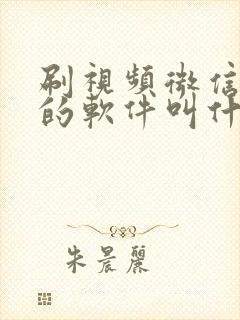 刷視頻微信
的軟件叫什
朱晨麗